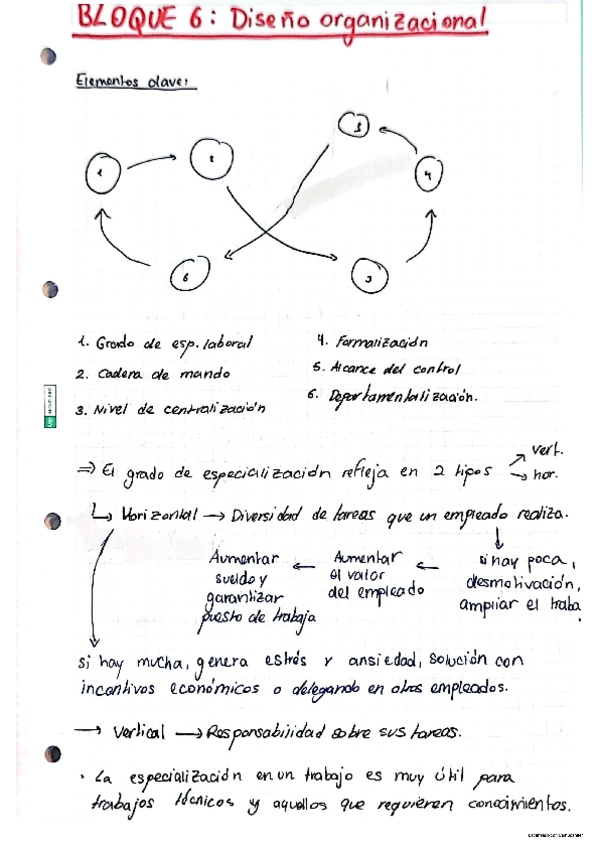 BLOQUE 6: Diseño organizacional
Elementos clave:
1
2
3
4
5
6
1. Grado de esp. laboral
2. Cadera de mando
3. Nivel de centralización
4. Formalización
5. Alcance del control
6. Departamentalización.
⇒ El grado de especialización refleja en 2 tipos ↗ vert. → hor.
↳ Horizontal → Diversidad de tareas que un empleado realiza.
↓ si hay poca, desmotivación, ampliar el traba
← Aumentar el valor del empleado
← Aumentar sueldo y garantizar puesto de trabajo
si hay mucha, genera estrés y ansiedad, solución con
incentivos económicos o delegando en otros empleados.
→ Vertical → Responsabilidad sobre sus tareas.
· La especialización en un trabajo es muy útil para
trabajos técnicos y aquellos que requieren conocimientos.